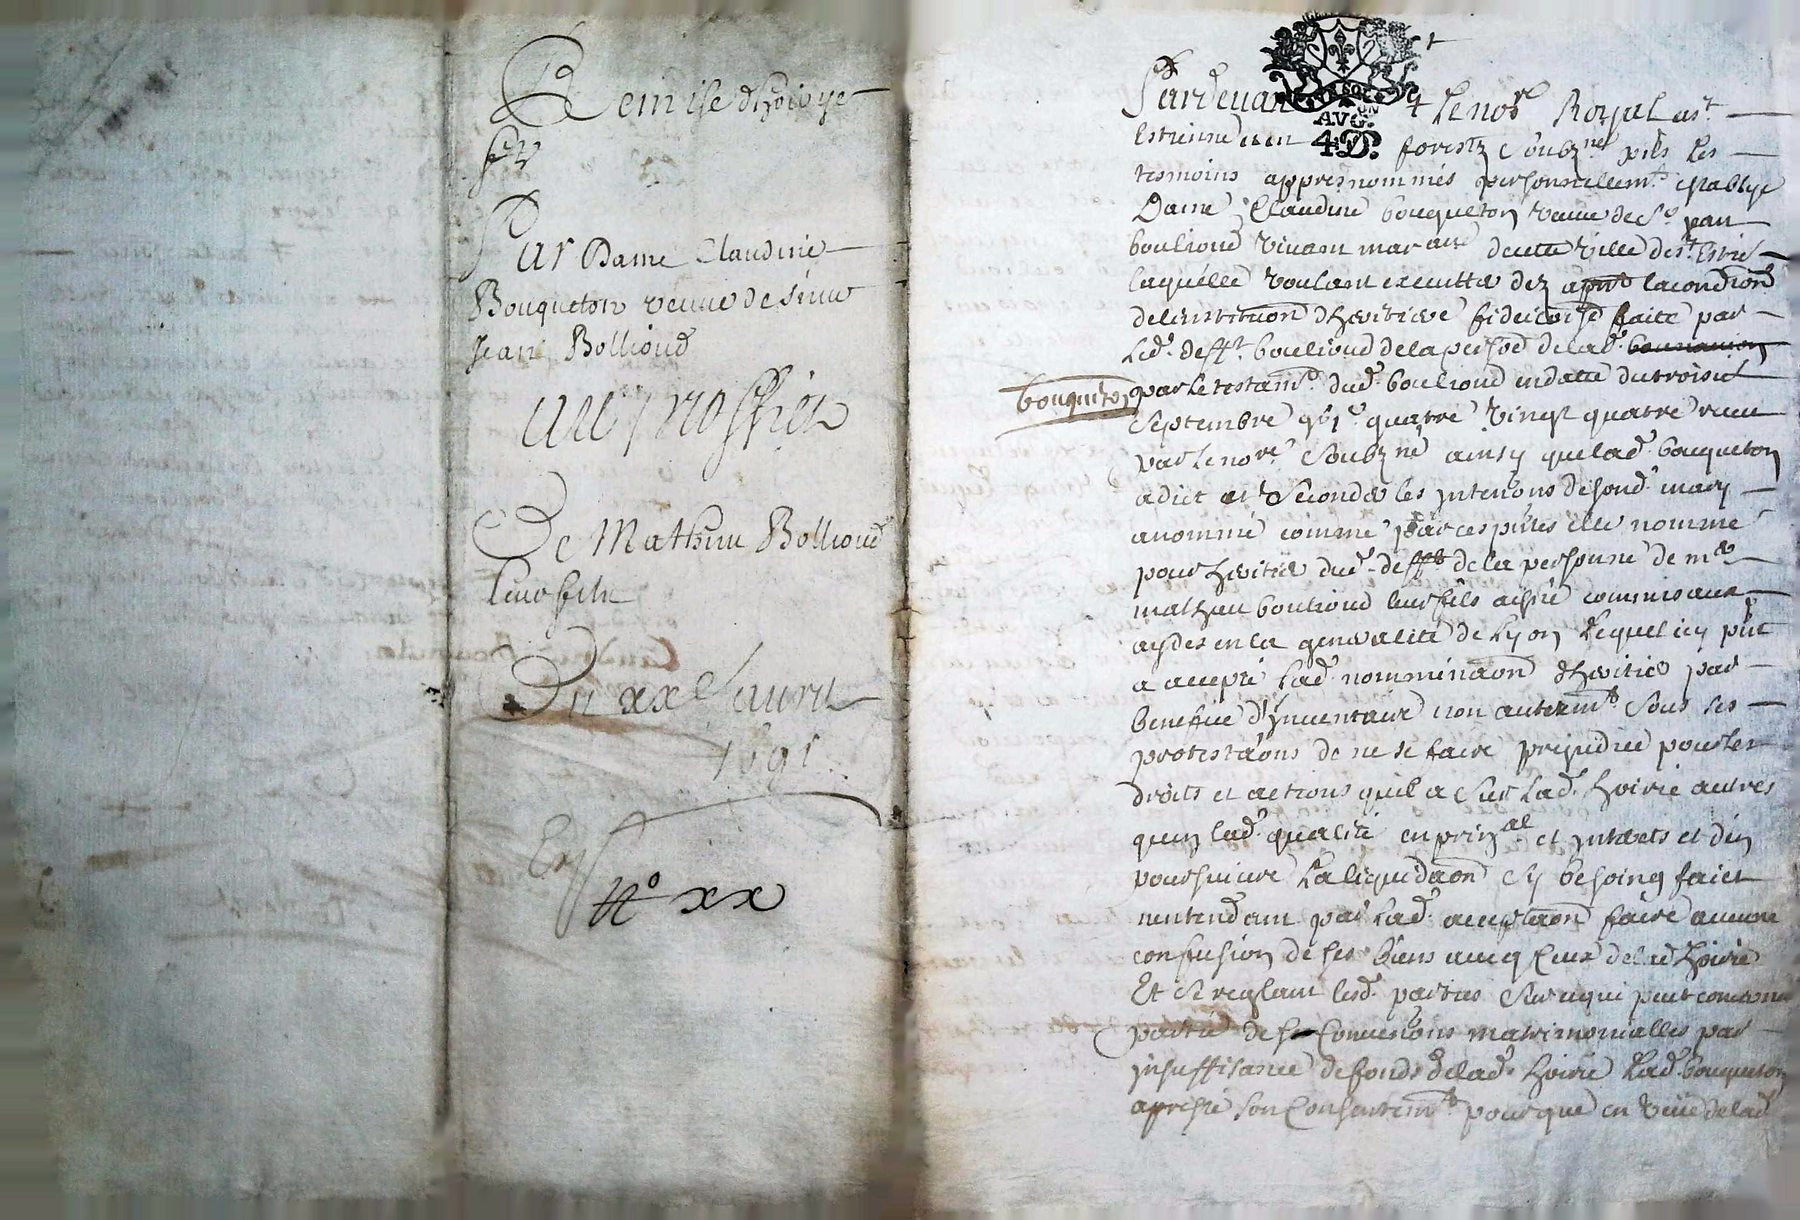 Remise d'hoirye
Par Dame Claudine
Bouqueton veuve de sieur
Jean Bollioud
Au proffict
De Mathieu Bollioud
leur filz
Du xxe Janvier
1691
No xx
AVG.
4 D.
Pardevant Le nore Royal a st
Estienne en forestz soubzne pñs les
tesmoins appres nommés personnellemt establye
Dame Claudine bouqueton veuve de sr jean
boulioud vivant mar de cette ville de st Estne
laquelle voulant executter la condition
de linstituon dheritiere fideicomise faite par
led. defft boulioud de la persoe de lad.
bouqueton par le testamt dud. boulioud en datte du troisie
septembre quatre vingt quatre receu
par le nore soubzne ainsy que lad. bouqueton
a dict et seconder les intenons de fond. mary
a nommé comme par ces pntes elle nomme
pour heritier dud. defft de la personne de me
mathieu boulioud leur fils aisné commis aux
aydes en la generalité de Lyon lequel icy pnt
a accepté lad. nomminaon dheritier par
benefice d'Inventaire non autremt sous les
protestaons de ne se faire prejudice pour les
droits et actions quil a sur lad. hoirie autres
quen lad. qualité en prinal et interets et d'en
poursuivre la liquidaon sy besoing faict
nentendant par lad. acceptaon faire aucune
confusion de ses biens avecq ceux de lad hoirie
Et se reglant lesd. parties sur ce qui peut concerner
partie de ses convenons matrimonialles par
insuffisance de fonds de lad. hoirie Lad. bouqueton
a preste son consentemt pour que en veue de lad